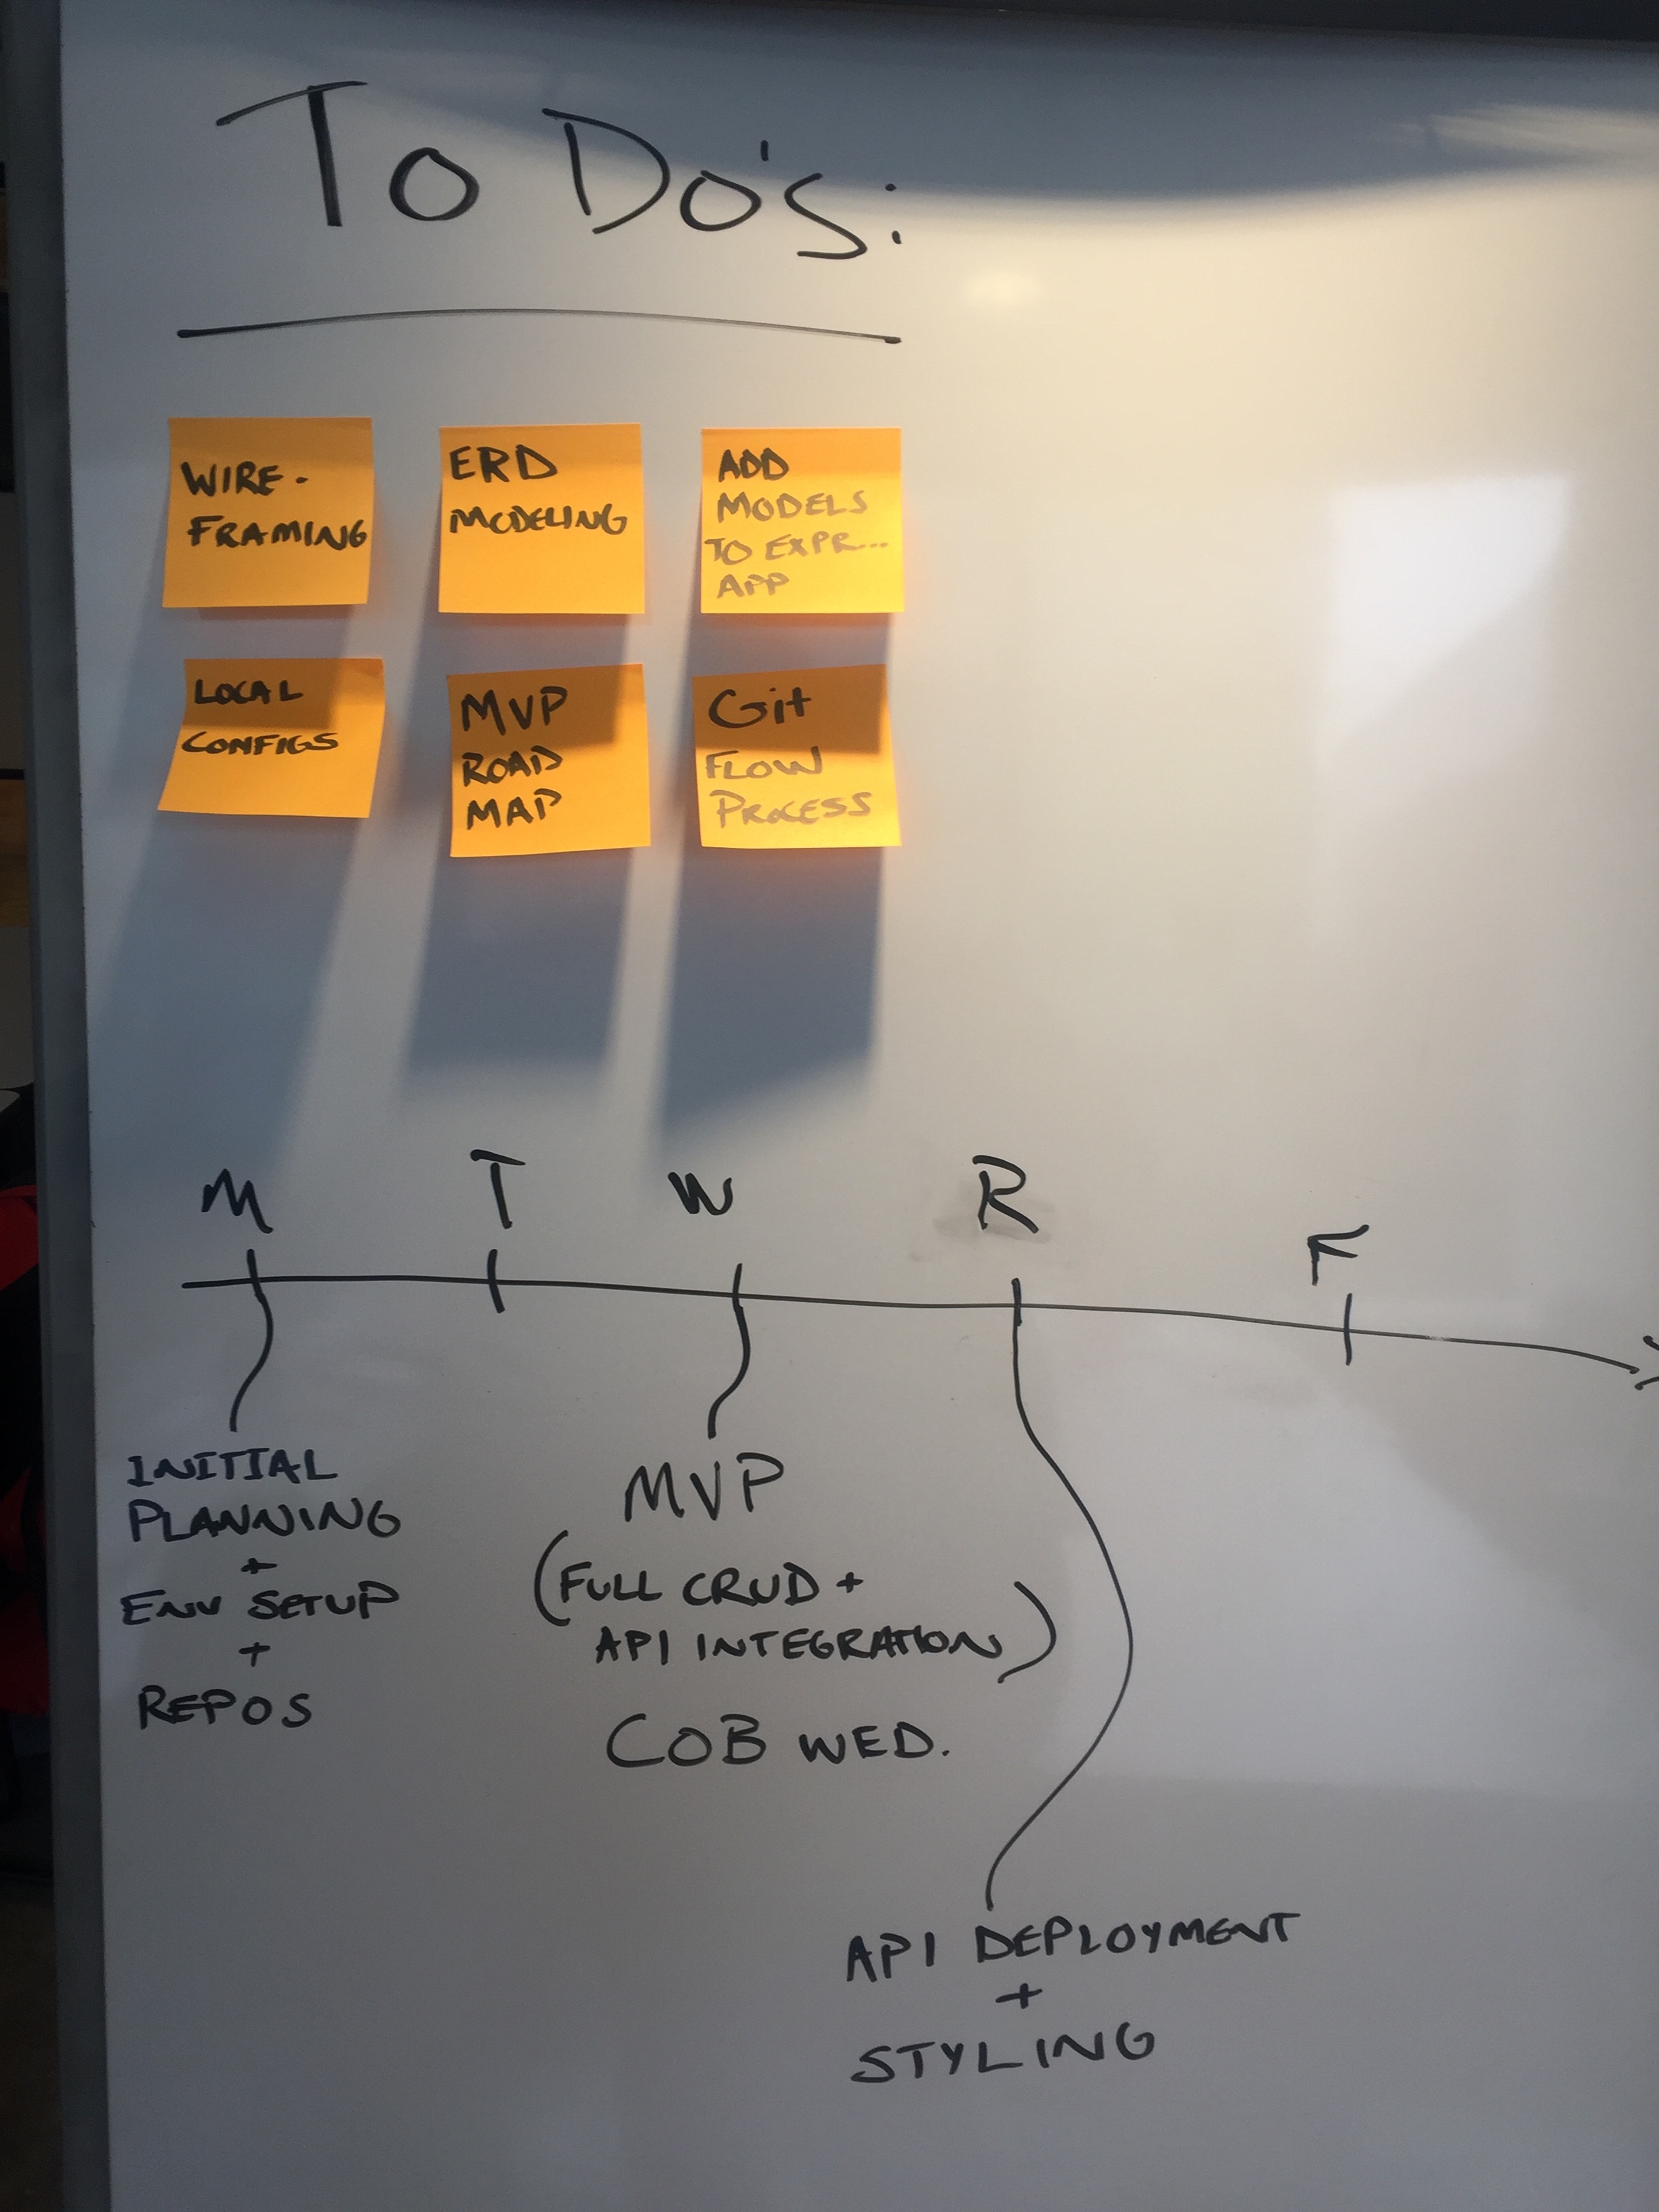 To Do's:
WIRE-
FRAMING
ERD
MODELING
ADD
MODELS
TO EXPR...
APP
LOCAL
CONFIGS
MVP
ROAD
MAP
Git
FLOW
PROCESS
M T W R F
INITIAL
PLANNING
+
ENV SETUP
+
REPOS
MVP
(FULL CRUD +
API INTEGRATION)
COB WED.
API DEPLOYMENT
+
STYLING